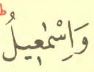 وَاِسْمٰعٖيلُ